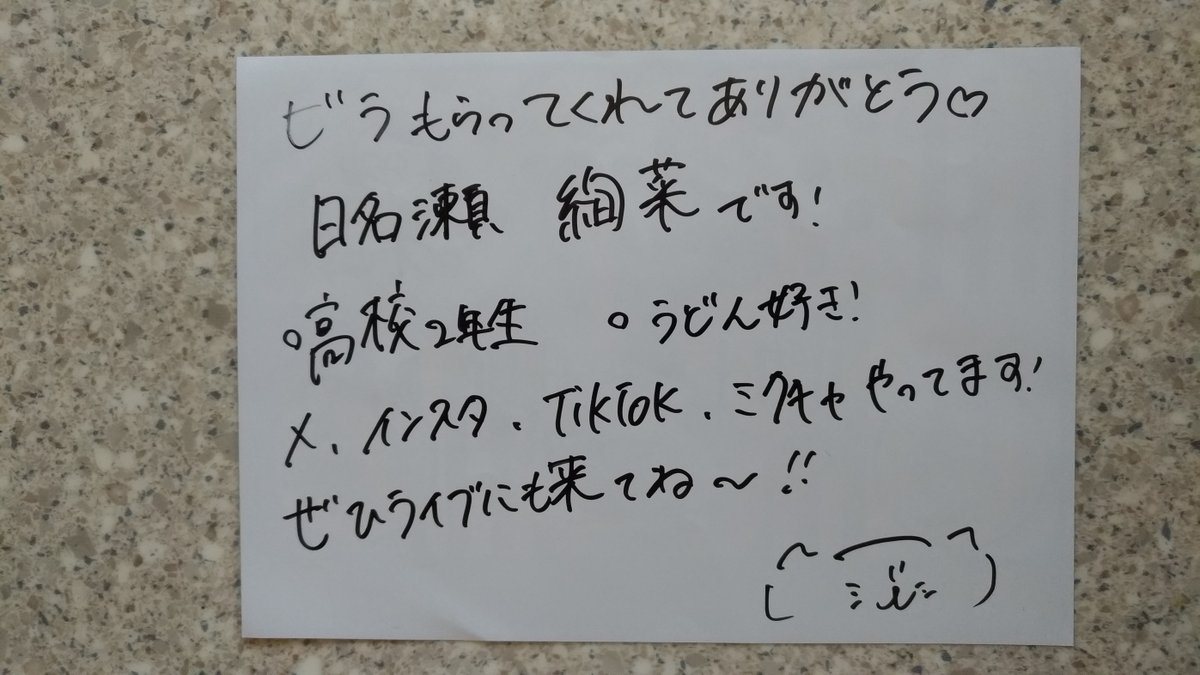 ビラもらってくれてありがとう♡
日名瀬 絢菜です!
○高校2年生 ○うどん好き!
X、インスタ、TikTok、ミクチャやってます!
ぜひライブにも来てね〜!!